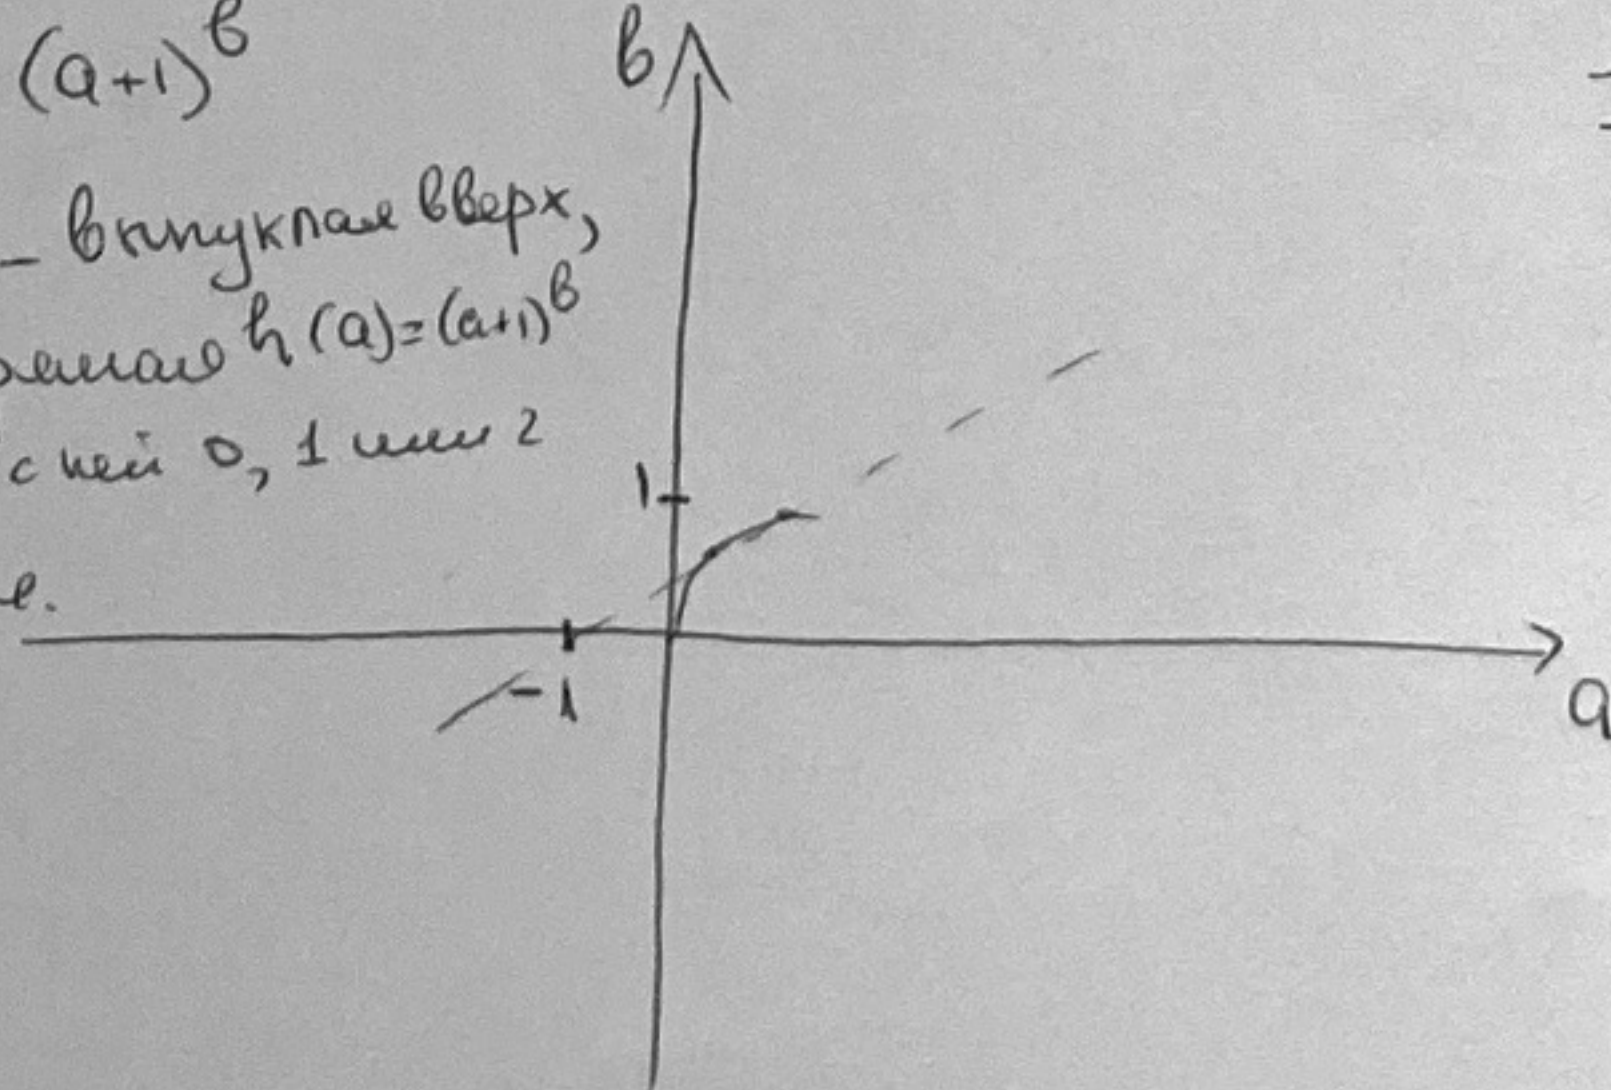 (a+1)^в
в
– выпуклая вверх,
h(a)=(a+1)^в
с ней 0, 1 или 2
1
е.
-1
a